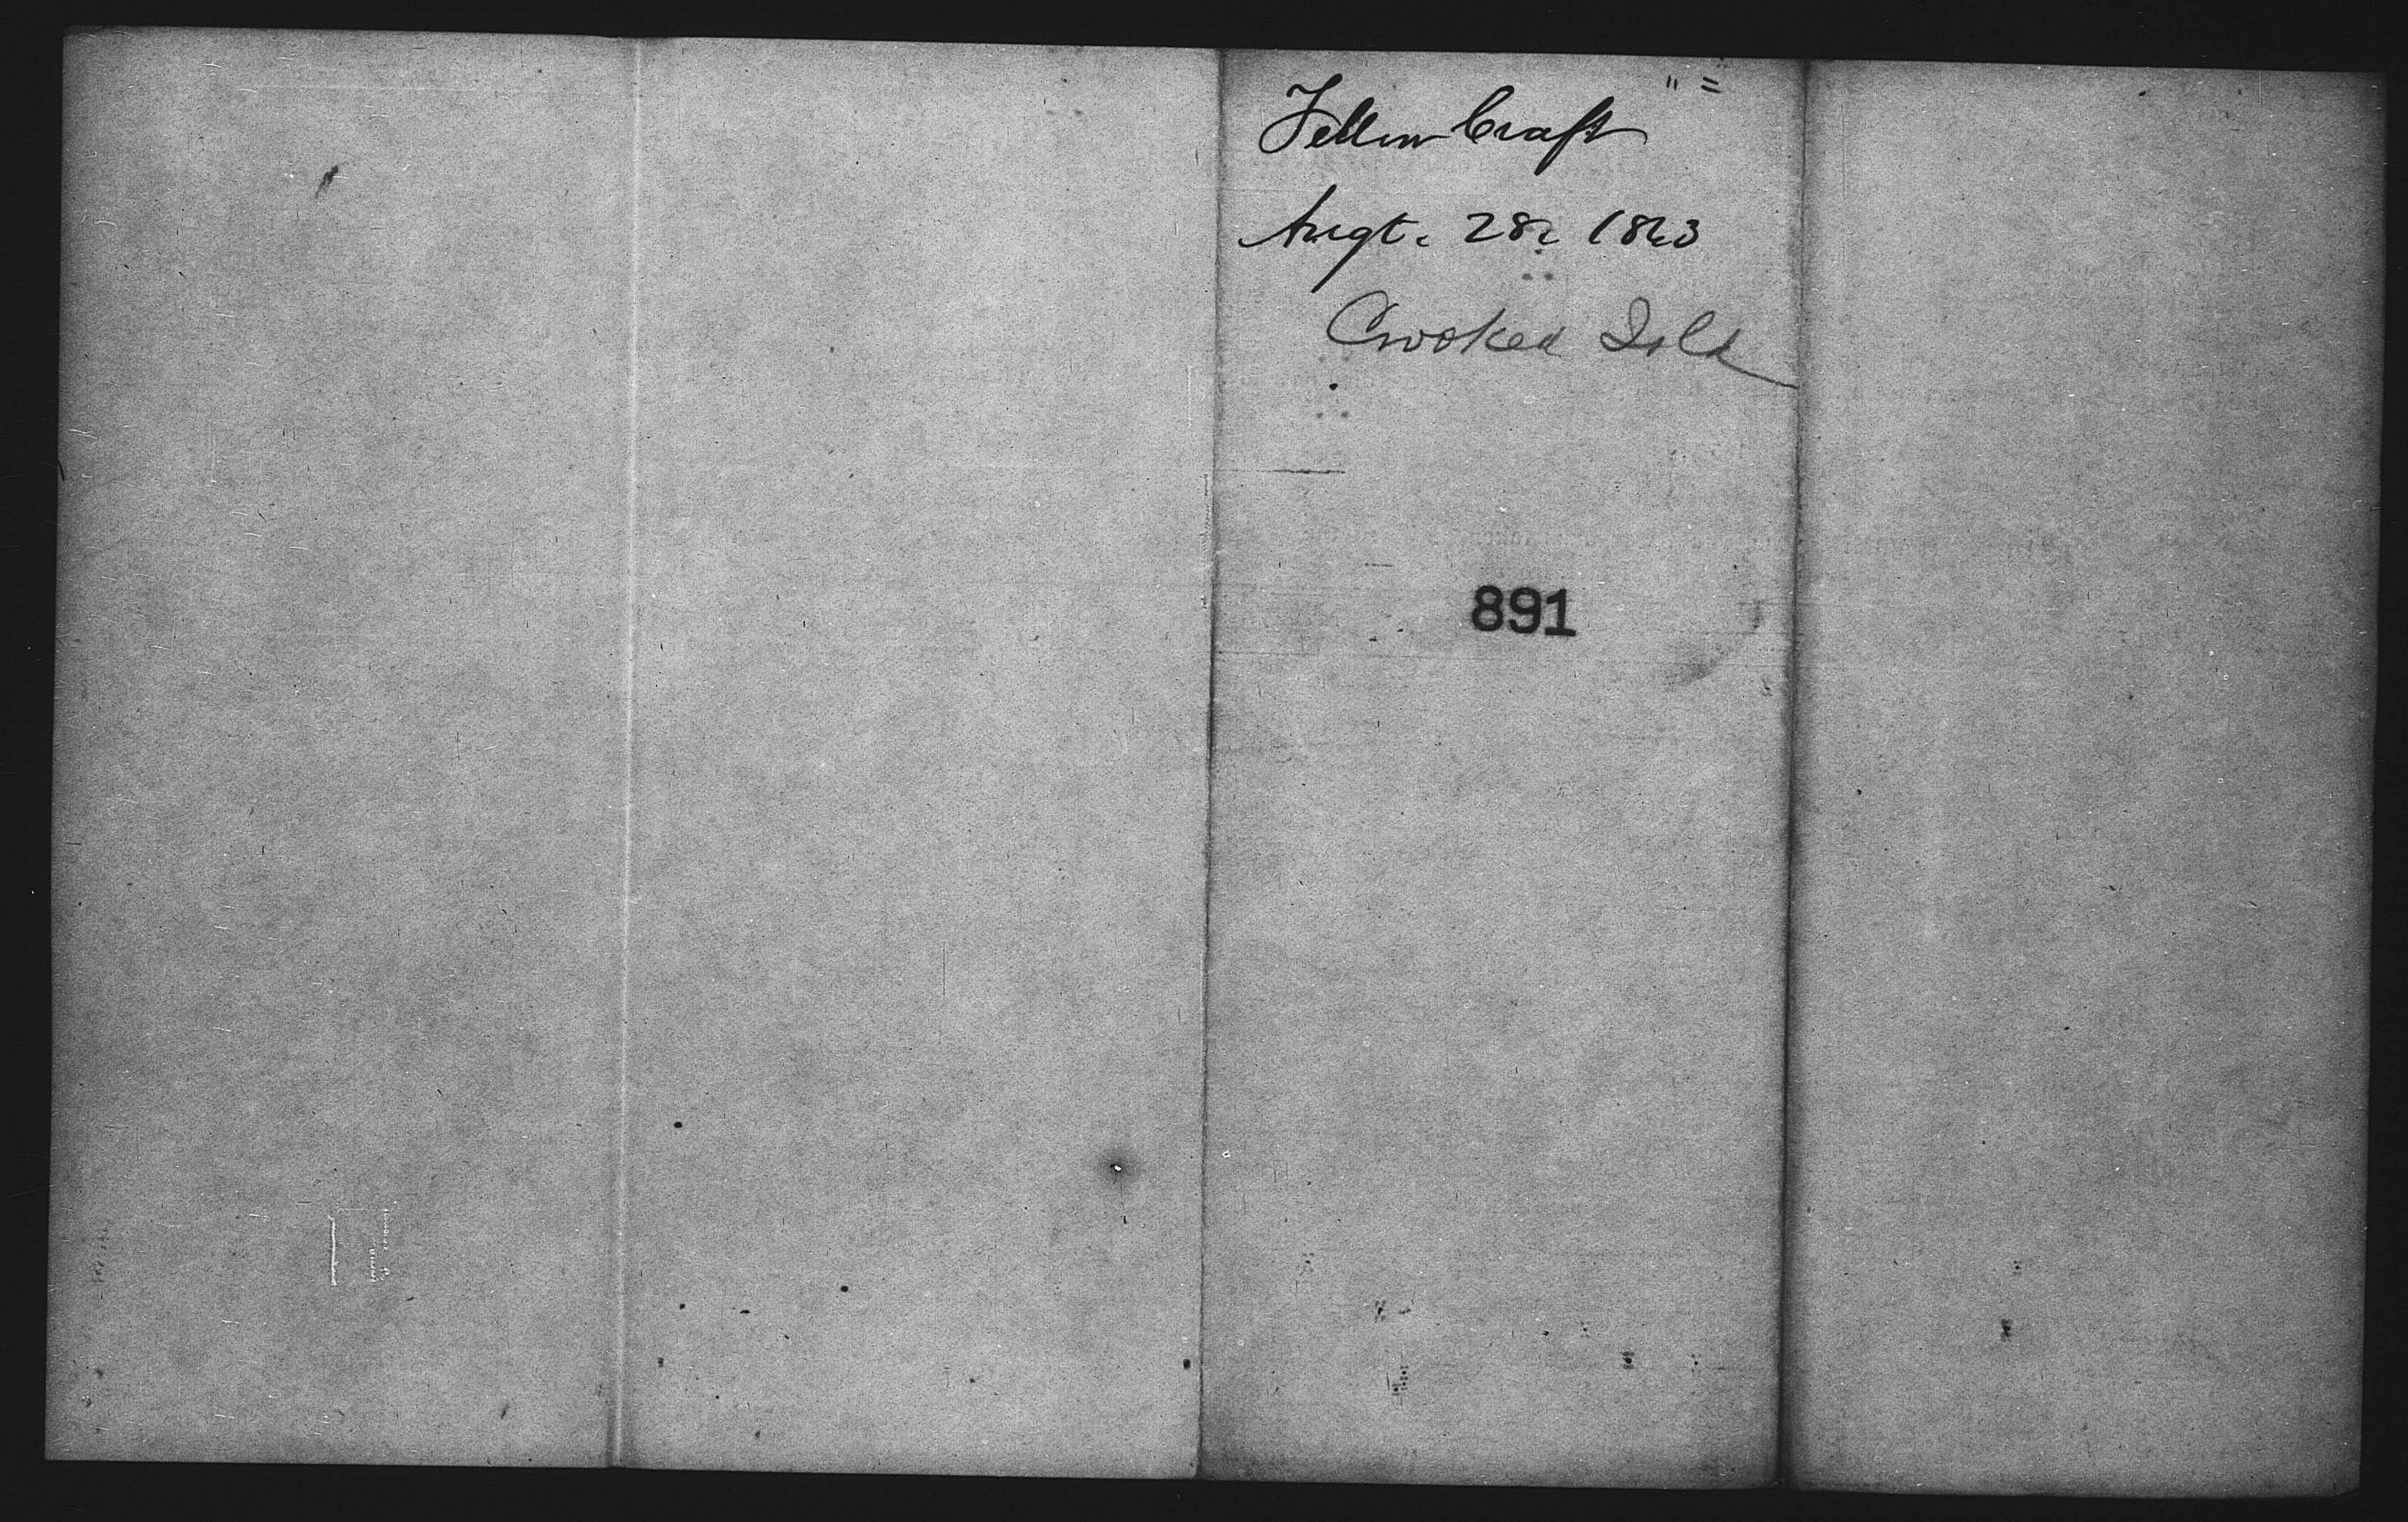 " =
Fellow Craft
Augt. 28. 1863
Crooked Isld
891